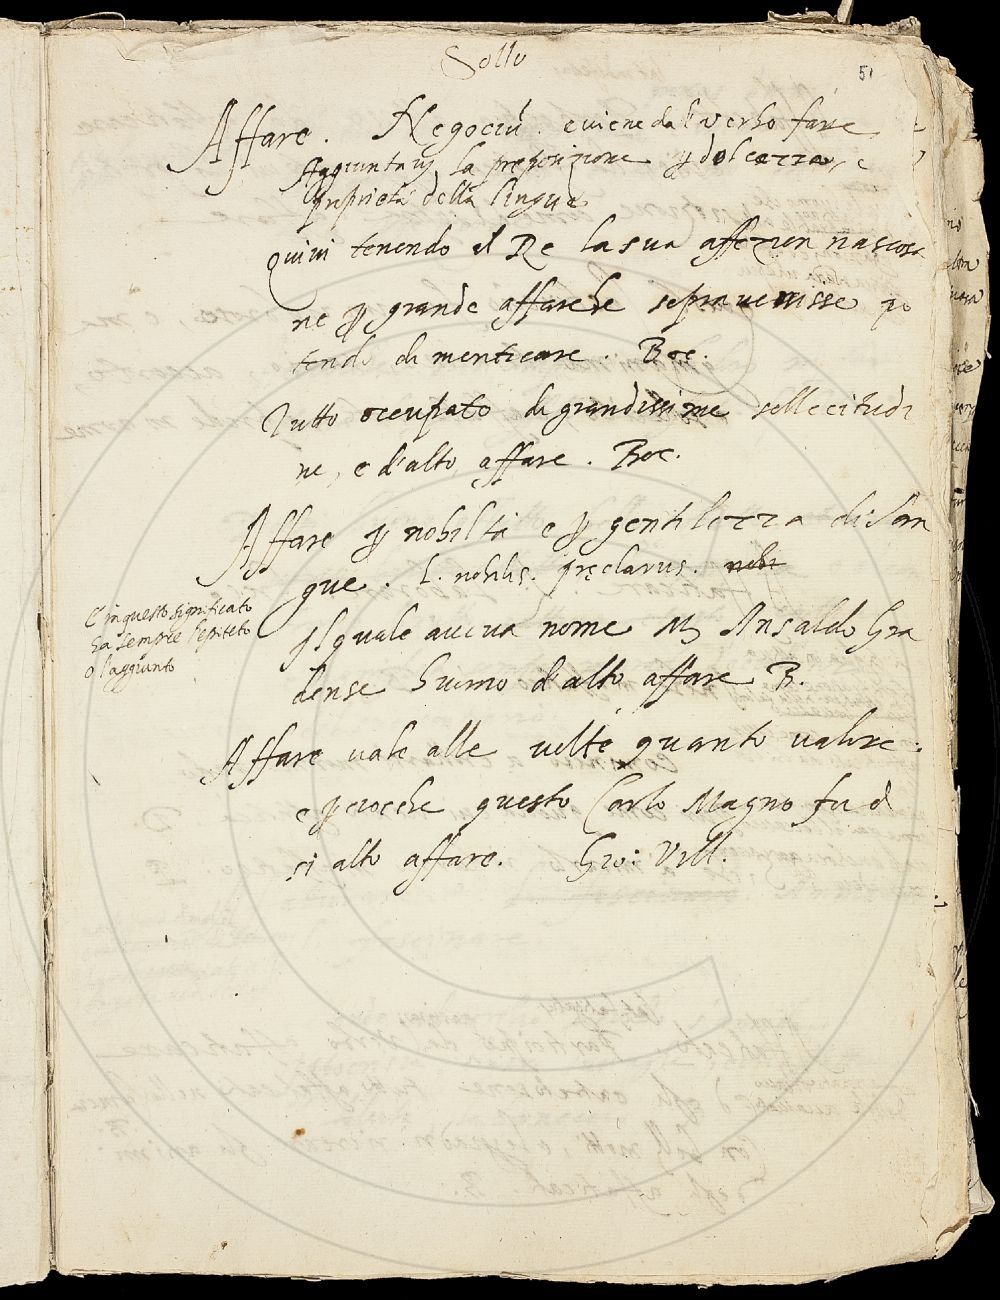 Sollo
51
Affare. Negociũ. e viene dal verbo fare
Aggiuntavi la preposizione ꝑ dolcezza, e
proprietà della lingua
Quivi tenendo il Re la sua affezion nascosa
ne ꝑ grande affare che sopravenisse po
tendo dimenticare. Boc.
Tutto occupato di grandissime sollecitudi
ne, e d'alto affare. Boc.
Affare ꝑ nobiltà e ꝑ gentilezza di san
gue. L. nobilis. pręclarus.
E in questo significato
ha sempre l'epiteto
o l'aggiunto
Il quale aveva nome M Ansaldo Gra
dense huomo d'alto affare B.
Affare vale alle volte quanto valore.
e ꝑcioche questo Carlo Magno fu d
si alto affare. Gio: Vill.